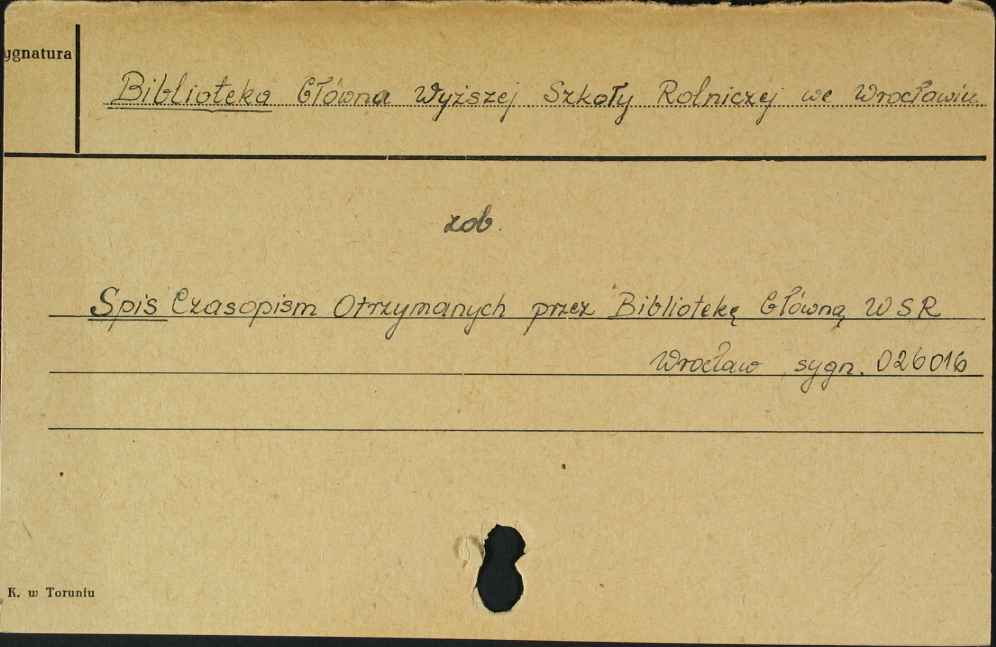 ygnatura
Biblioteka Główna Wyższej Szkoły Rolniczej we Wrocławiu
zob.
Spis Czasopism Otrzymanych przez Bibliotekę Główną WSR
Wrocław sygn. 026016
K. w Toruniu